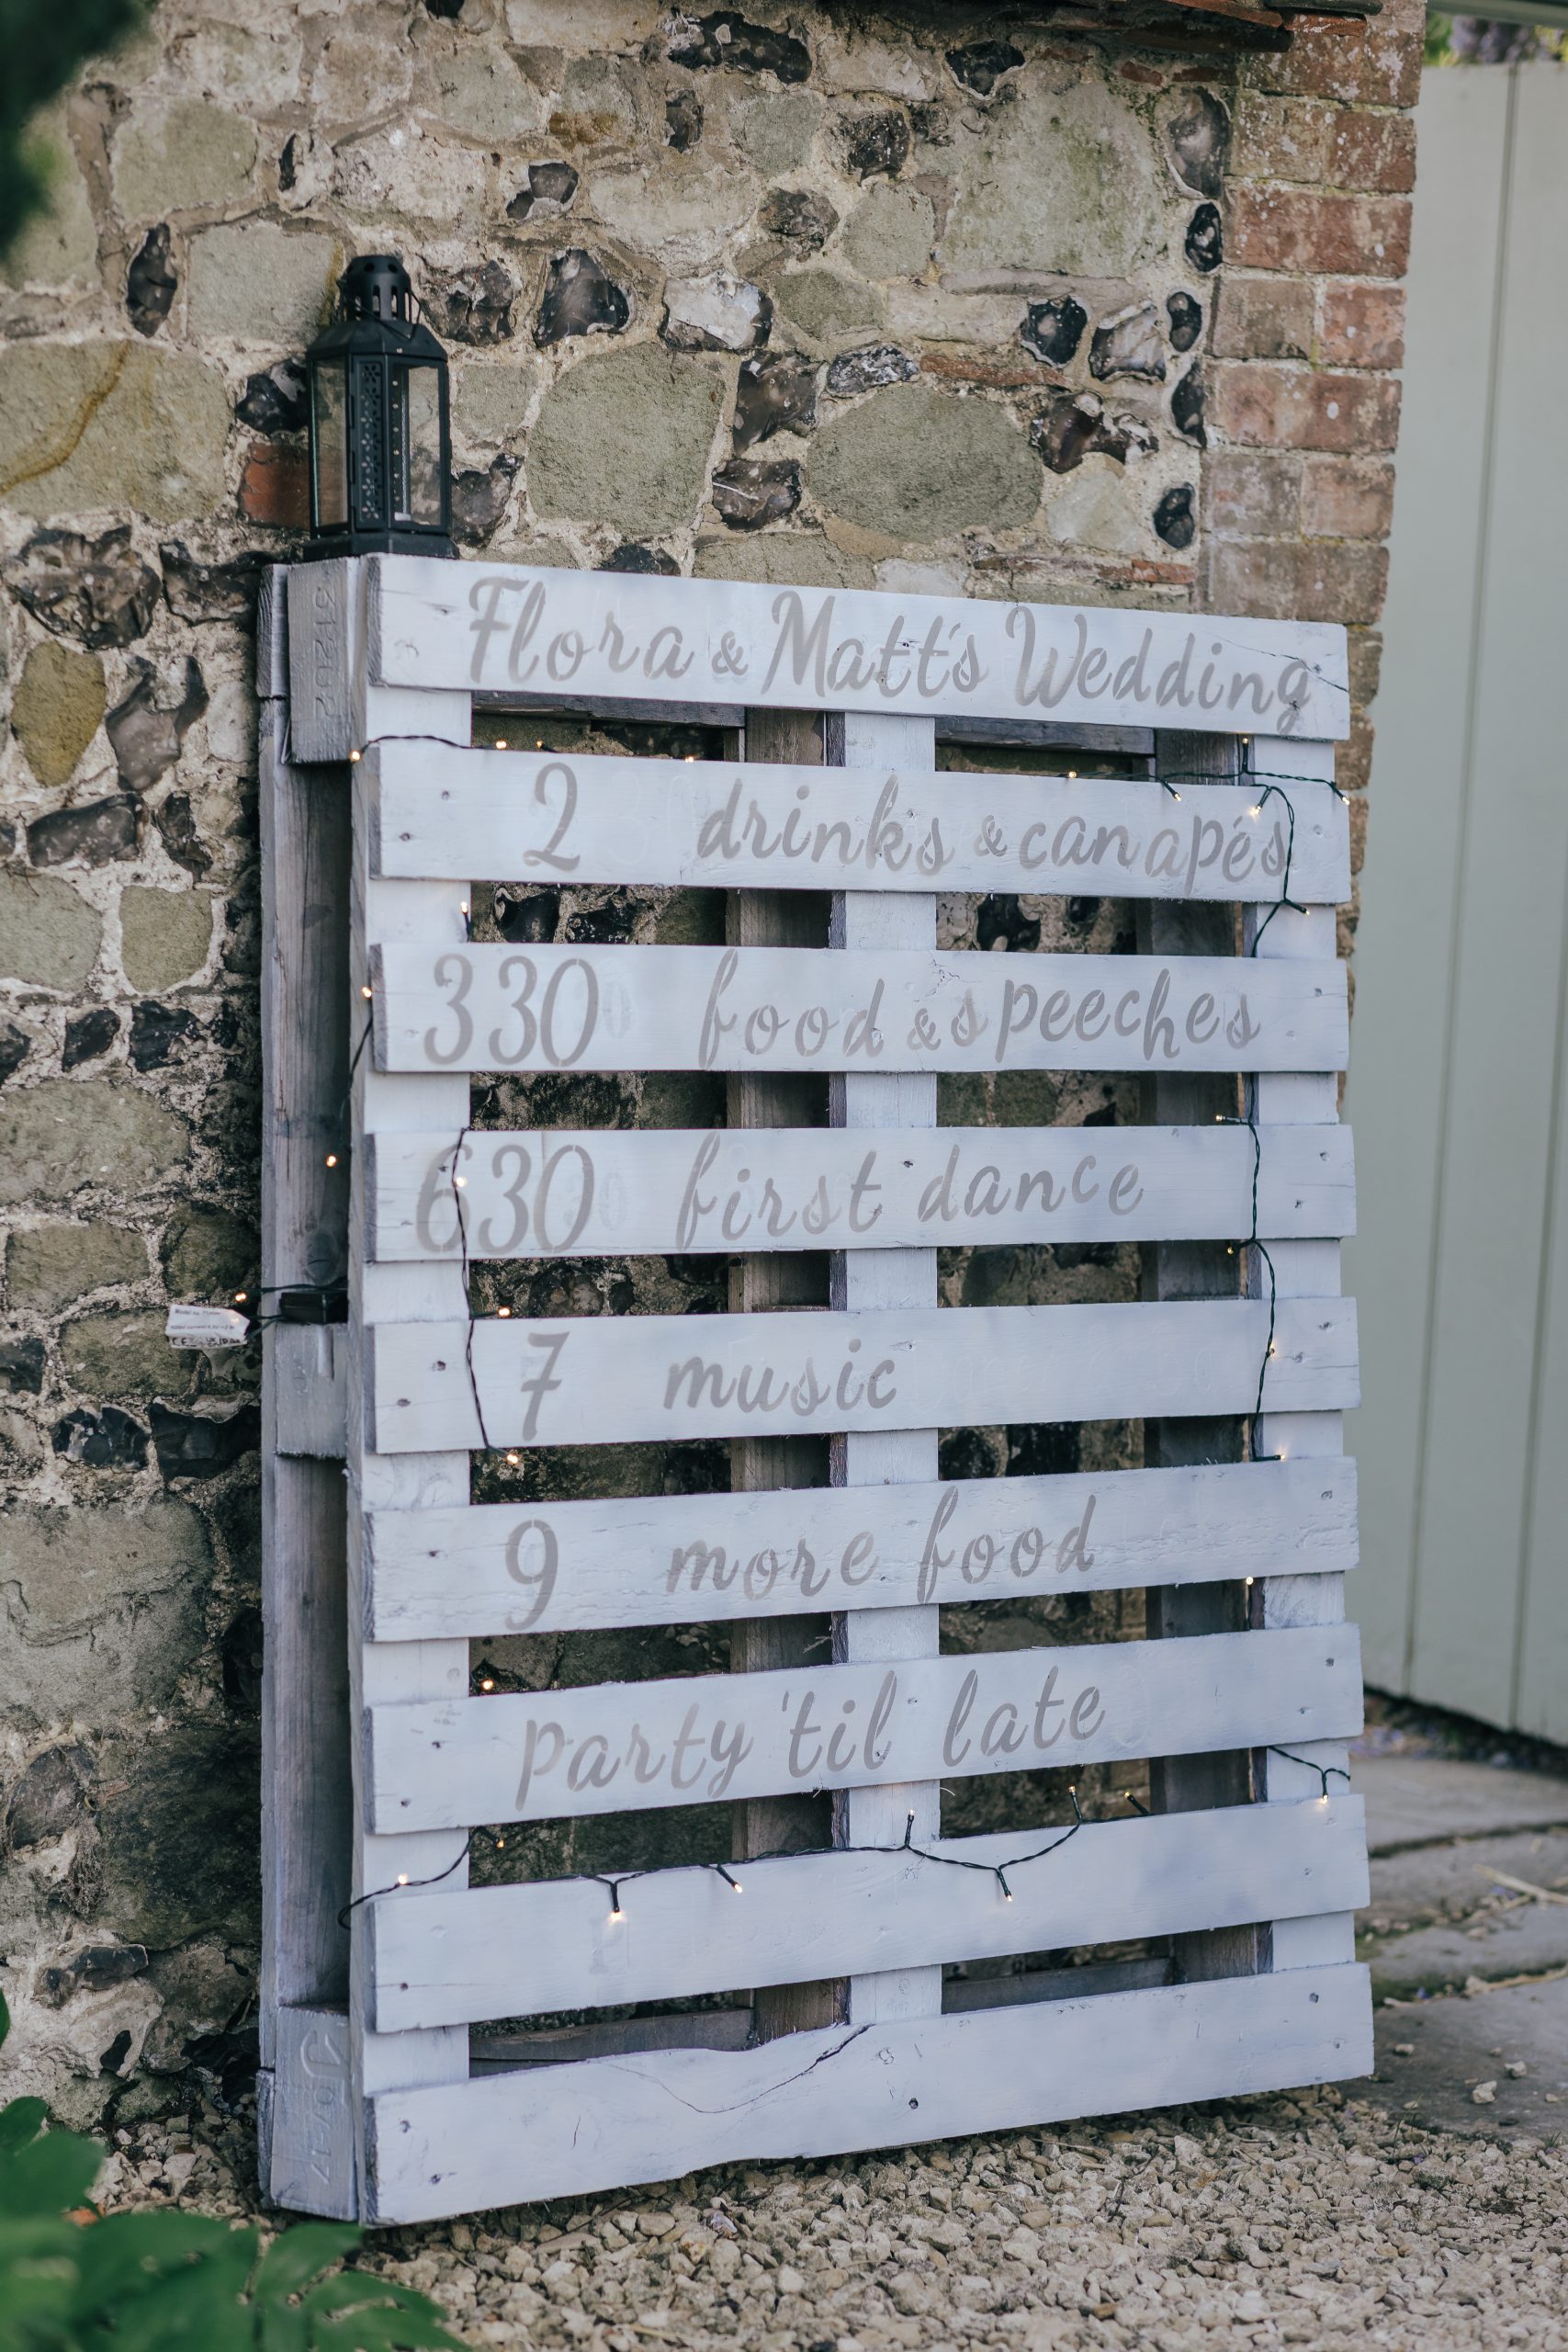 Flora & Matt's Wedding
2 drinks & canapés
330 food & speeches
630 first dance
7 music
9 more food
party 'til late